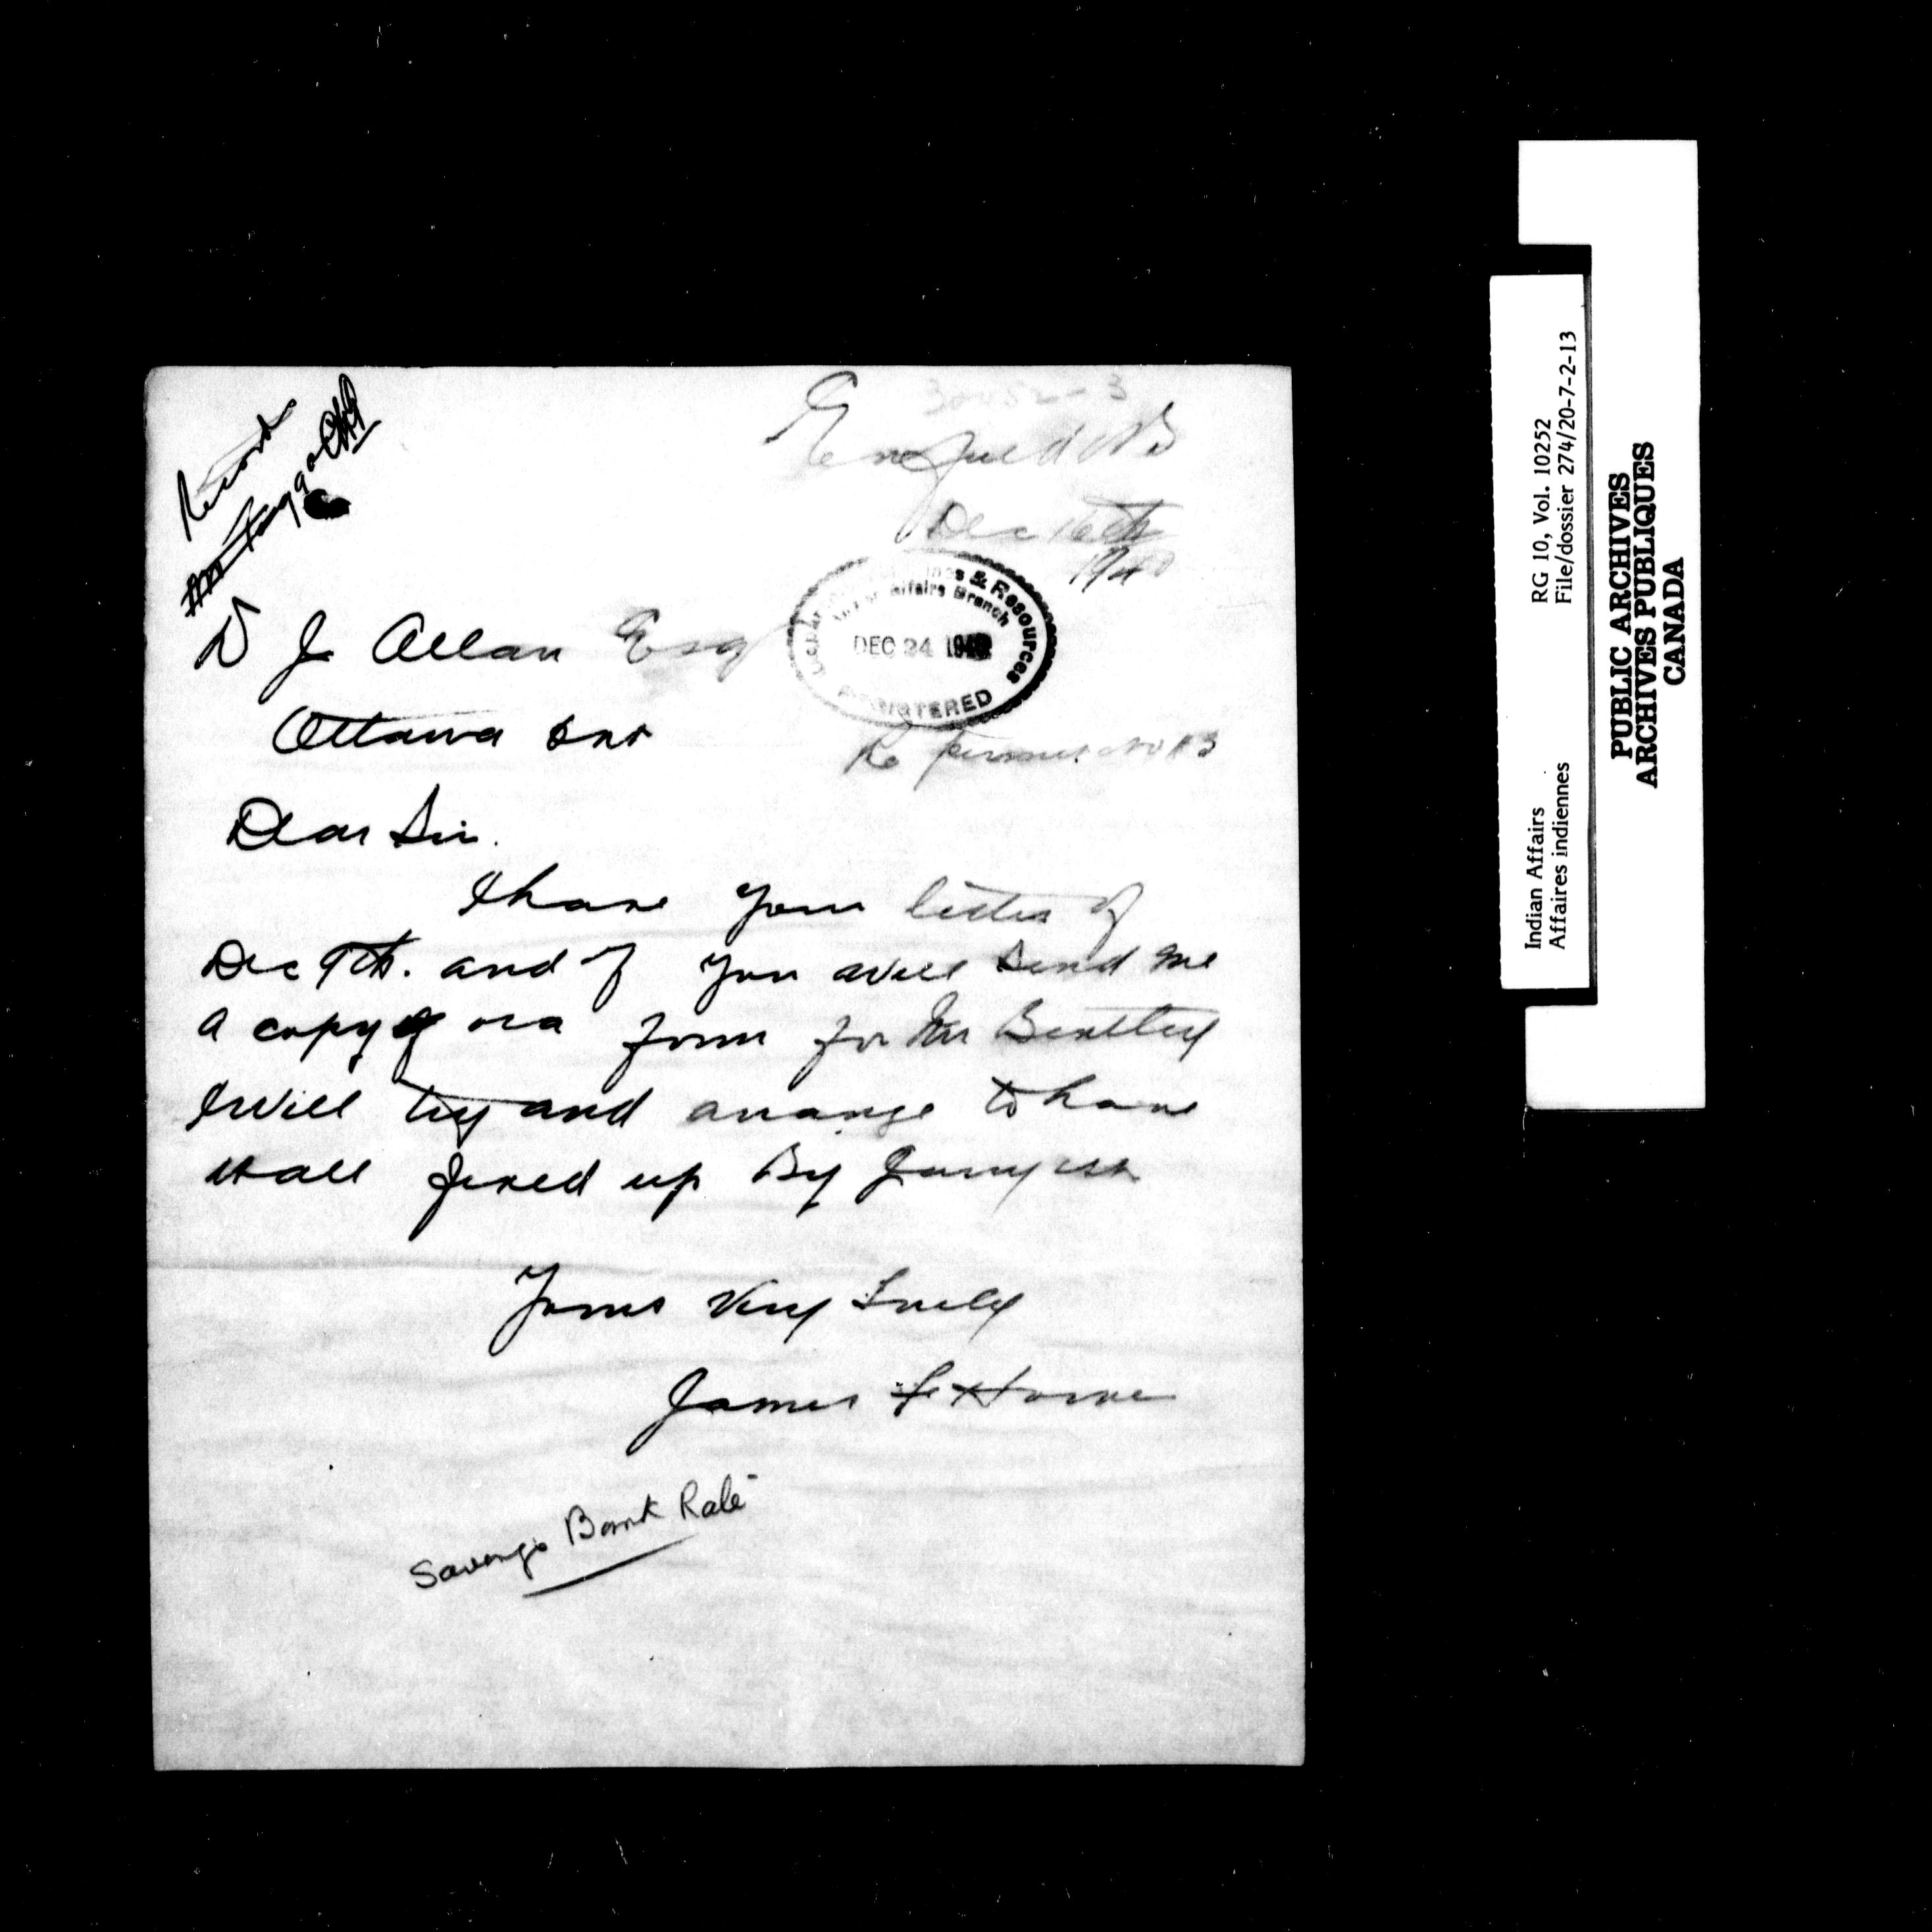 30052-3
Enfield NS
Dec 16th
1940
Record
Mines & Resources
Affairs Branch
DEC 24 194
REGISTERED
D J Allan Esq
Ottawa Ont
Re No 13
Dear Sir.
I have your letter of
Dec 9th. and if you will send me
a copy of or a form for Mr Benttey
I will try and arrange to have
it all fixed up By Jany 1st
Yours Very Truly
James F Horne
Savings Bank Rate
Indian Affairs RG 10, Vol. 10252
Affaires indiennes File/dossier 274/20-7-2-13
PUBLIC ARCHIVES
ARCHIVES PUBLIQUES
CANADA